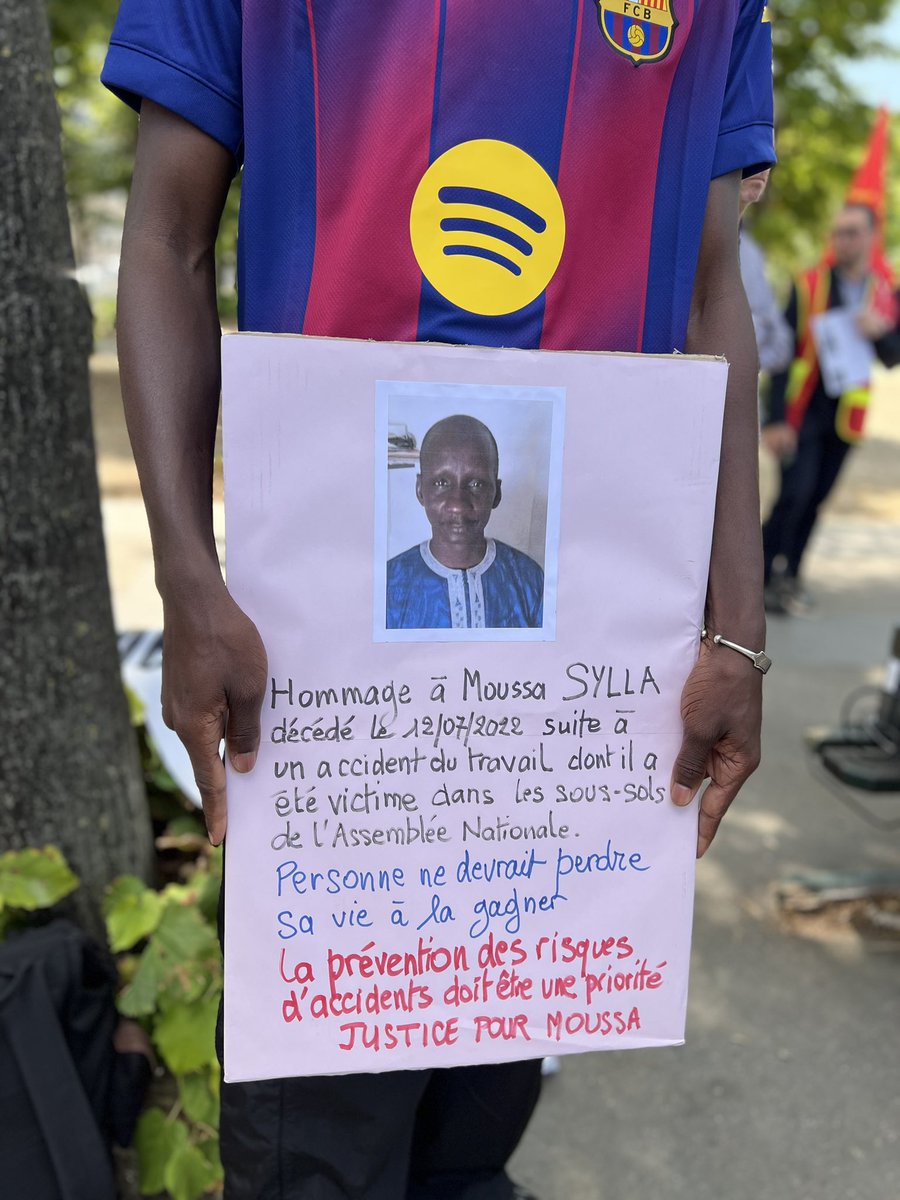 FCB
Hommage à Moussa SYLLA
décédé le 12/07/2022 suite à
un accident du travail dont il a
été victime dans les sous-sols
de l'Assemblée Nationale.
Personne ne devrait perdre
sa vie à la gagner
La prévention des risques
d'accidents doit être une priorité
JUSTICE POUR MOUSSA